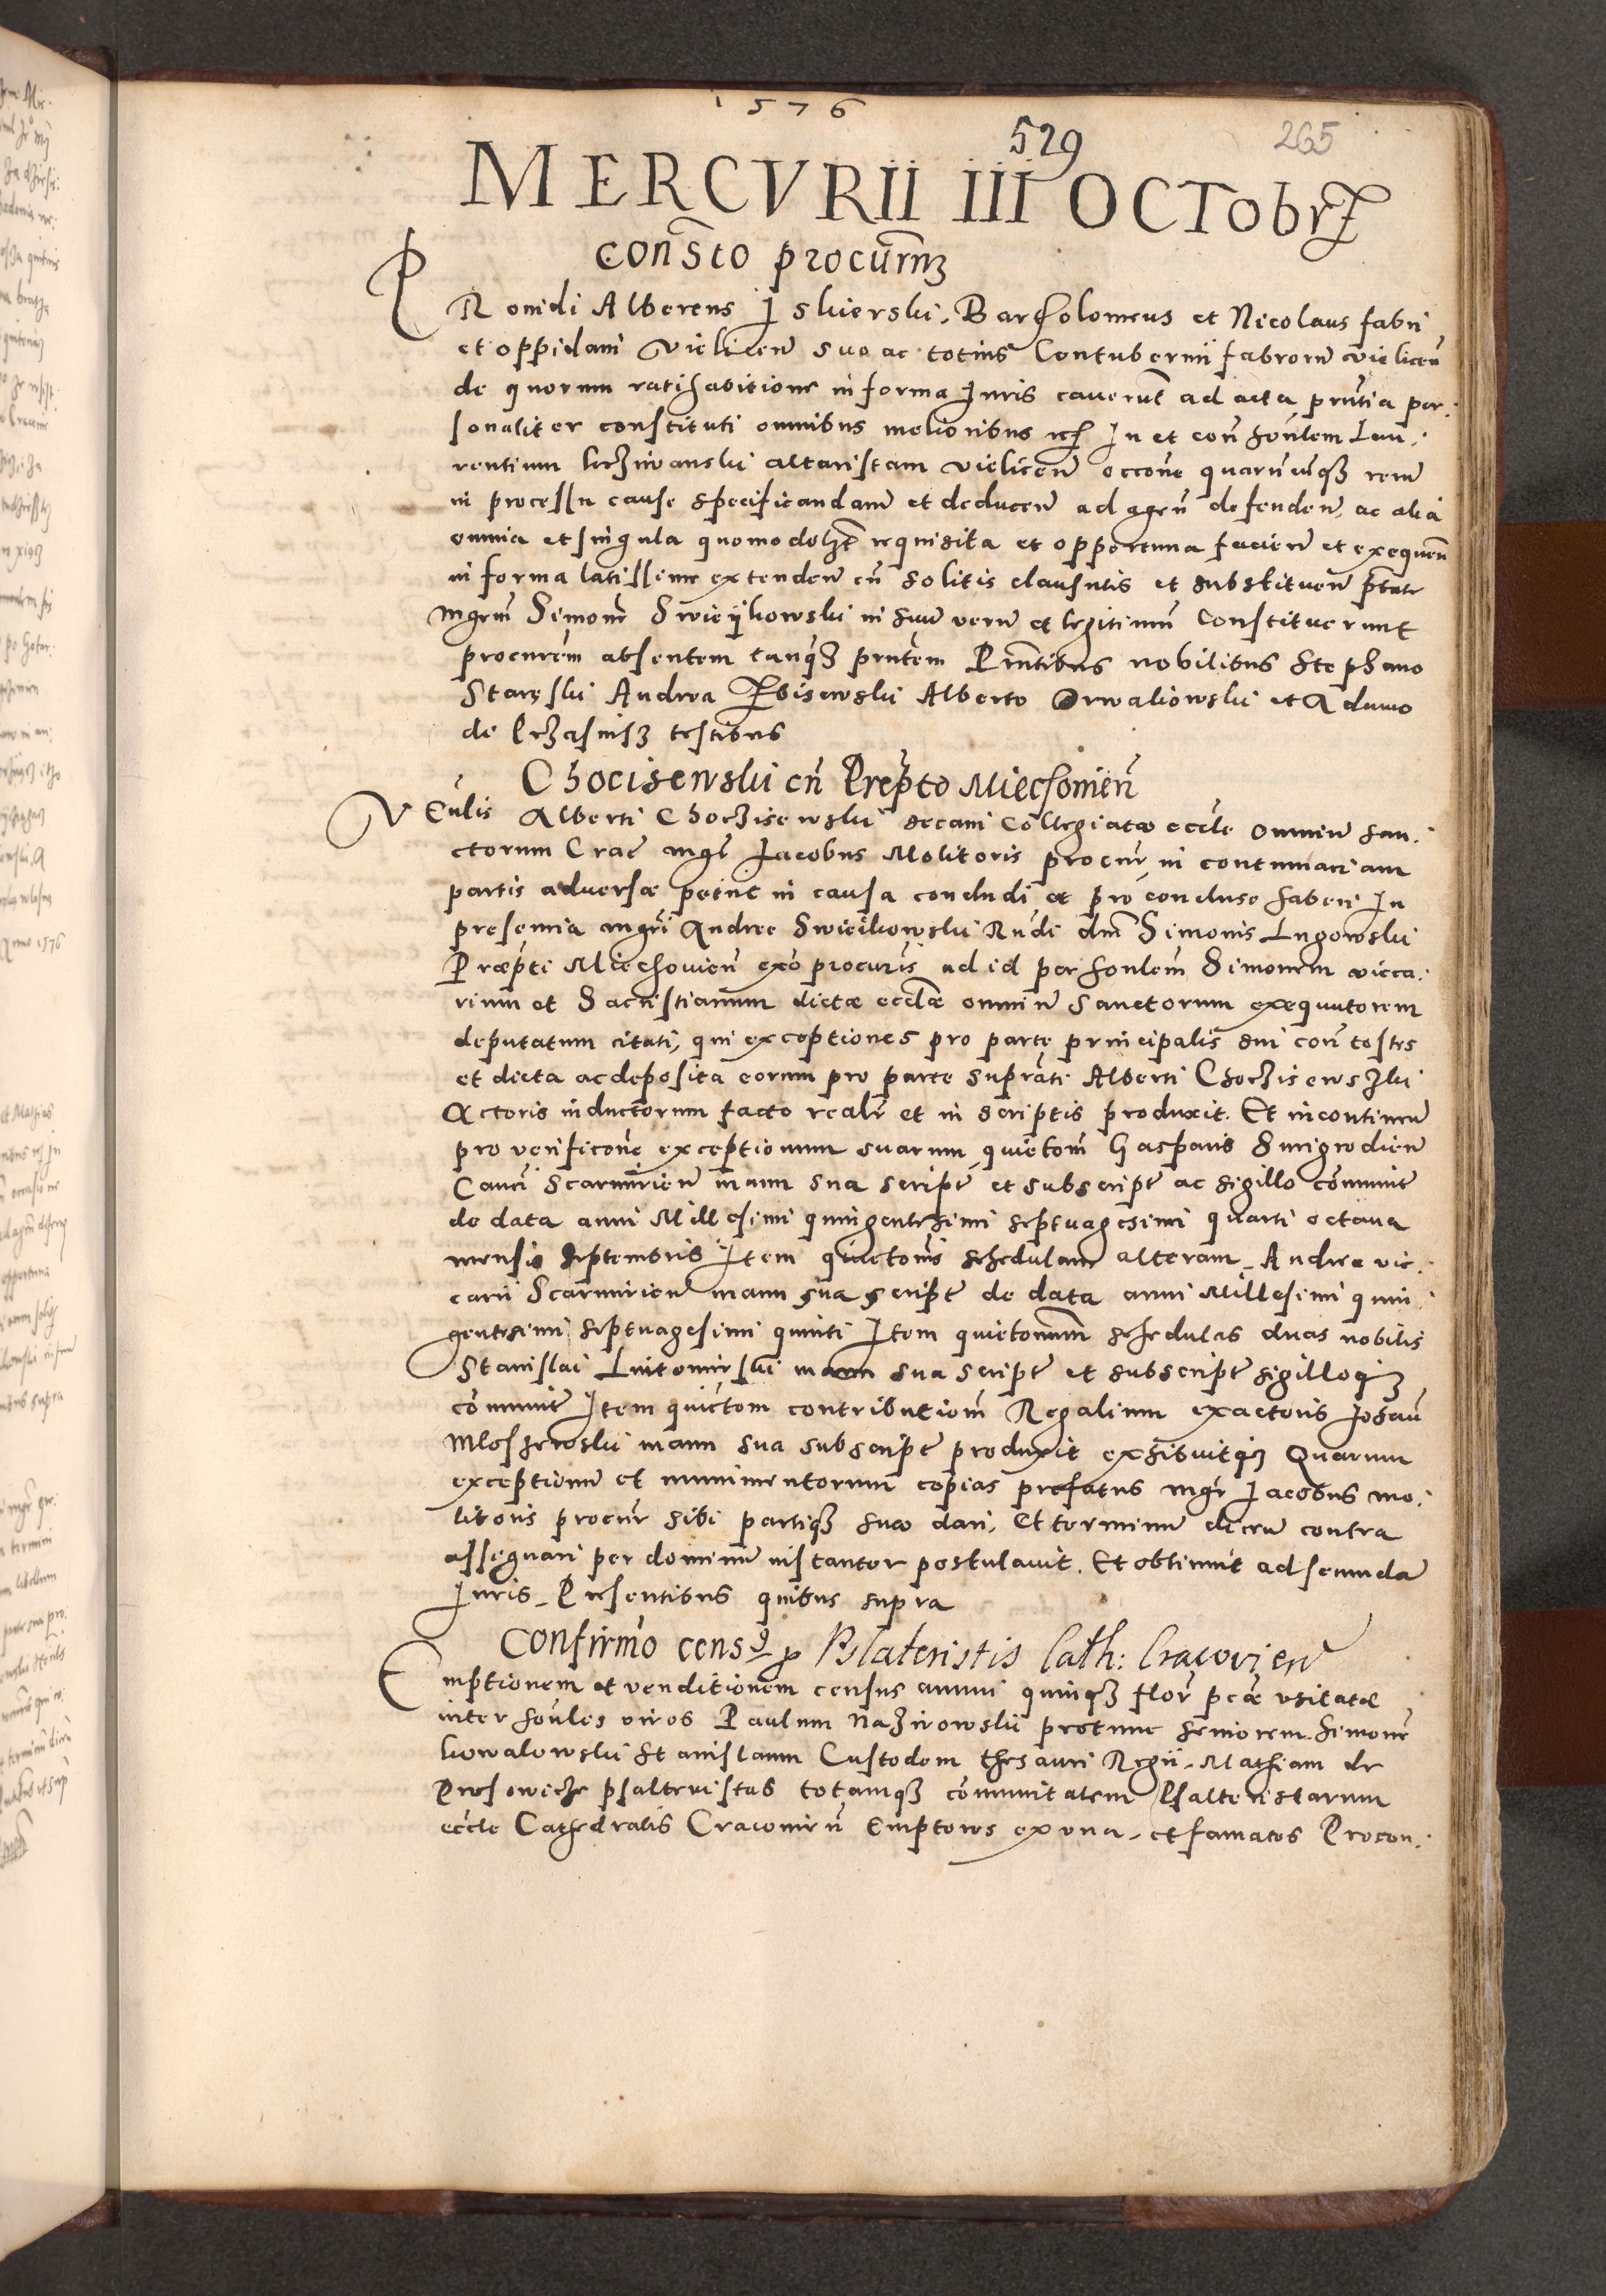 1576
529
265
MERCVRII III OCTobrȝ
conſto procurm̃
PRouidi Albertus Iskierski, Bartholomeus et Nicolaus fabri
et oppidani vielicen̄ suo ac totius Contubernii fabrorū vielicen̄
de quorum ratihabitione in forma Iuris cauerūt ad acta prn̄tia per-
sonaliter constituti omnibus melioribus In et con honlem Lau-
rentium altaristam vielicen̄ occone quarūcūqȝ rerū
in processu cause specificandarū et deducen̄ ad agen̄ defenden̄ ac alia
omnia et singula quomodolȝt requisita et opportuna facien̄ et exequen̄
in forma latissime extenden̄ cū solitis clausulis et substituen̄ ptate
mgrm̄ Simonē Swieijkowski in suū verū et legitimū Constituerunt
procurem absentem tanqȝ prntem Prn̄tibus nobilibus Stephano
Starȩski Andrea Alberto et Adamo
de testibus
Chocisewski cn̄ Prepto Miechouien̄
VEn̄lis Alberti Choczisewski decani Collegiatæ eccle omniū San-
ctorum Crac mgr Iacobus Molitoris procur in contumaciam
partis aduersæ petiit in causa concludi et pro concluso haberi In
presentia mgri Andree Swieikowski Rndi dni Simonis Lugowski
Præpti Miechouien̄ exo procuris ad id per honlem Simonem vicca-
rium et Sacristianum dictæ ecclæ omniū Sanctorum exequutorem
deputatum citati, qui exceptiones pro parte principalis sui con testes
et dicta ac deposita eorum pro parte suprati Alberti Choczisewszki
Actoris inductorum facto realr et in scriptis produxit. Et incontinen̄
pro verificone exceptionum suarum quietom̄ Gasparis Surigrodien̄
Canci Scarmirien̄ manu sua script et subscript ac sigillo communit
de data anni Millesimi quingentesimi septuagesimi quarti octaua
mensis septembris Item quietonis schedulam alteram Andree vic-
carii Scarmirien̄ manu sua script de data anni Millesimi quin
gentesimi septuagesimi quinti Item quietonum schedulas duas nobilis
Stanislai Lutomirski manu sua script et subscript sigilloqȝ
communit Item quietom contributiom̄ Regalium exactoris Iohan̄
Mloszewski manu sua subscript produxit exhibuitqȝ Quarum
exceptionū et munimentorum copias prefatus mgr Iacobus mo-
litoris procur sibi partiqȝ suæ dari, Et terminū dicen̄ contra
assignari per dominū instanter postulauit. Et obtinuit ad secundā
Iuris. Presentibus quibus supra
Confirmo cens9 p Psalteristis Cath: Cracovien̄
Emptionem et venditionem census annui quinqȝ flor pcæ vsitatæ
inter honles viros Paulum Nazirowski protunc seniorem Simonē
kowalowski Stanislaum Custodem thesauri Regii, Mathiam de
psalteristas totamqȝ communitatem Psalteristarum
eccle Cathedralis Cracouien̄ Emptores ex vna, et famatos Procon-